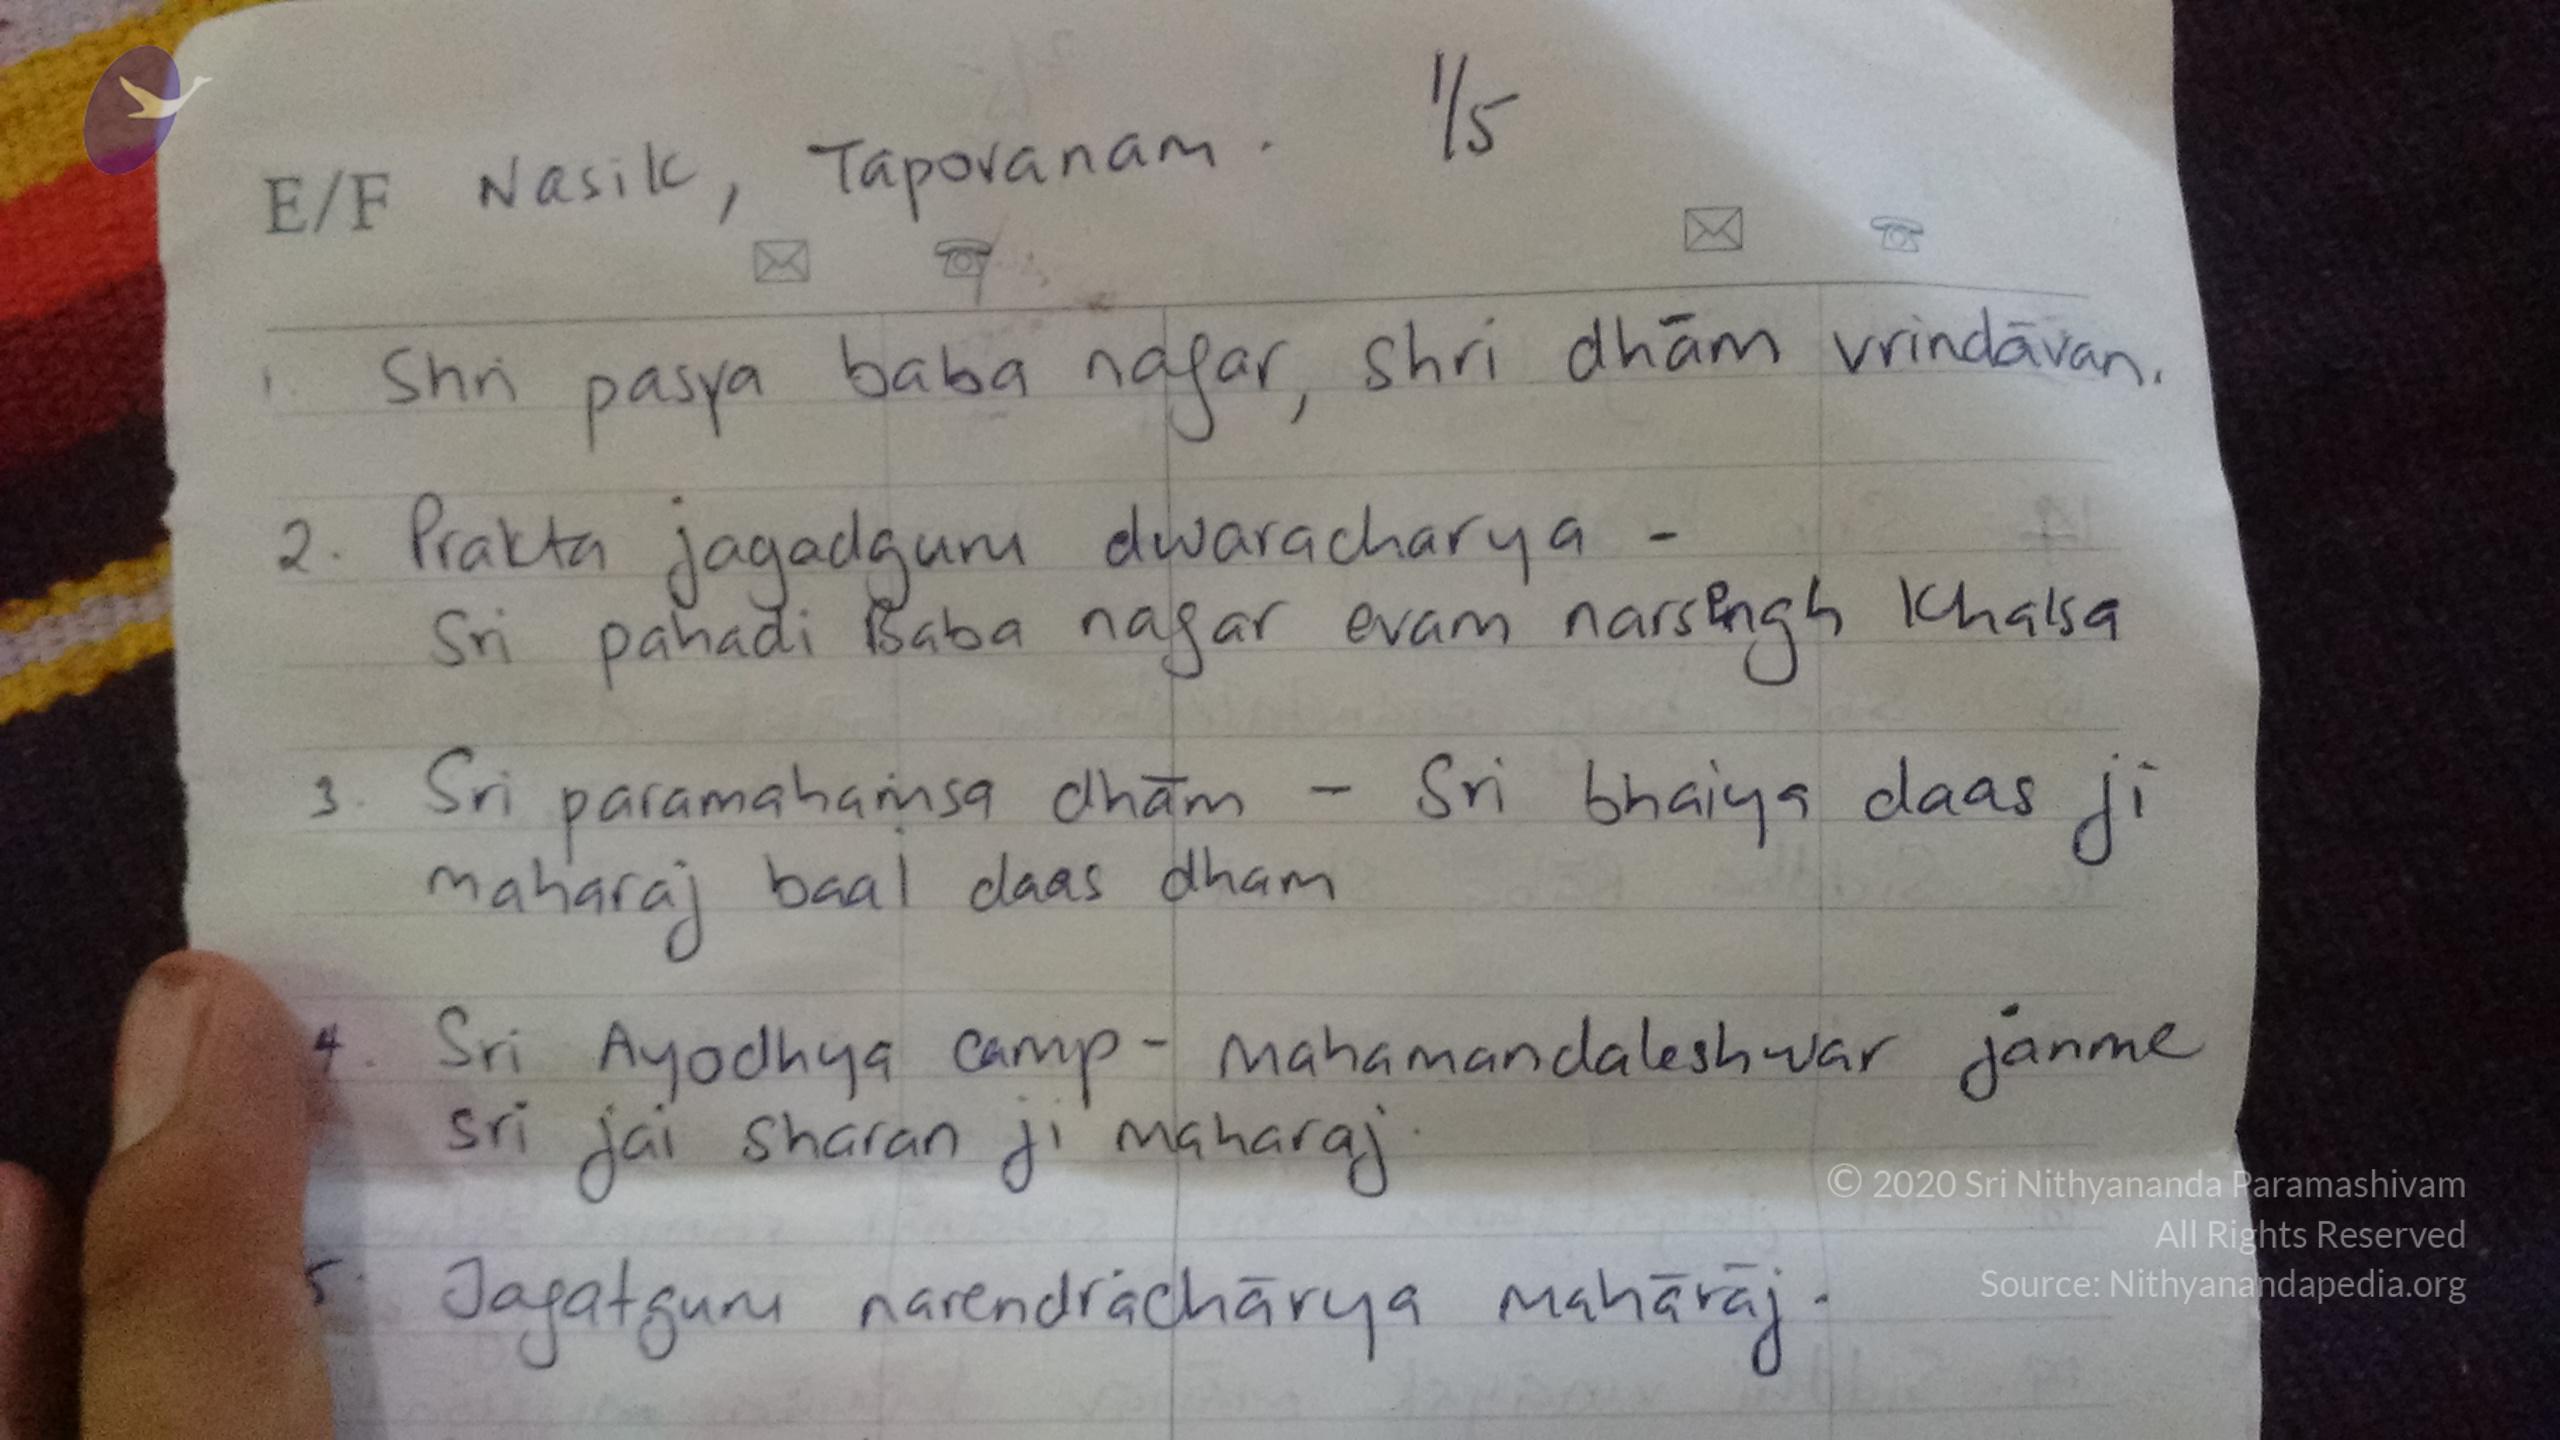 1/5
E/F Nasik, Tapovanam.
1. Shri pasya baba nagar, shri dhām vrindāvan.
2. Prakta jagadguru dwaracharya -
Sri pahadi Baba nagar evam narsingh Khalsa
3. Sri paramahaṁsa dhām - Sri bhaiya daas ji
maharaj baal daas dham
4. Sri Ayodhya camp - Mahamandaleshwar janme
sri jai sharan ji maharaj.
5. Jagatguru narendrāchārya mahārāj.
© 2020 Sri Nithyananda Paramashivam
All Rights Reserved
Source: Nithyanandapedia.org